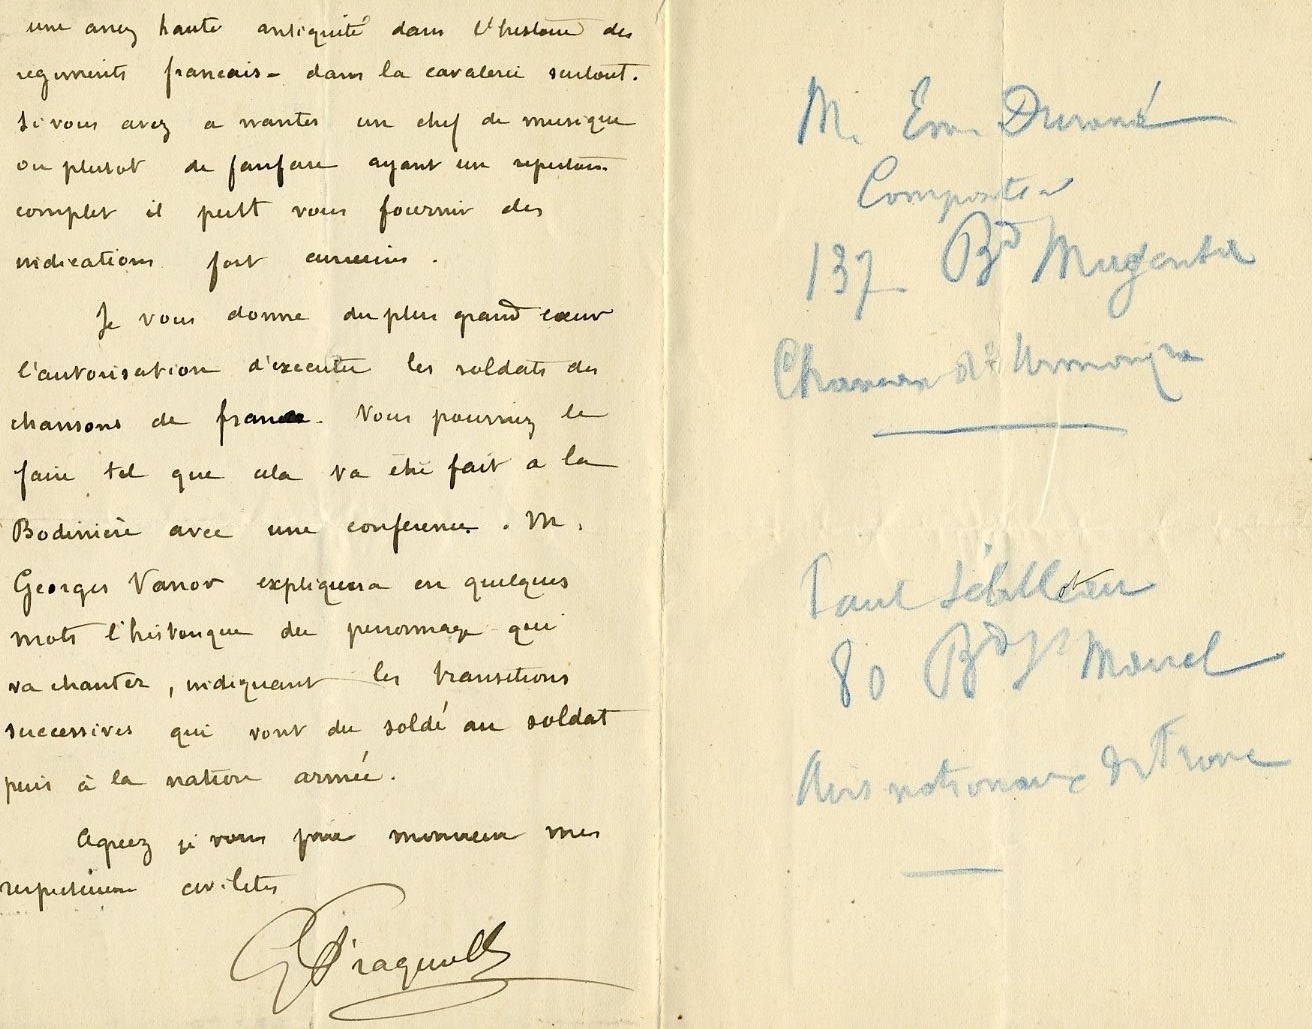 une assez haute antiquité dans l'histoire des
regiments francais - dans la cavalerie surtout.
Si vous avez a nantes un chef de musique
ou plutot de fanfare ayant un repertoire
complet il peut vous fournir des
indications fort curieuses.
Je vous donne du plus grand cœur
l'autorisation d'executer les soldats des
chansons de france. Vous pourriez le
faire tel que cela va être fait a la
Bodinière avec une conference. M.
Georges Vanor expliquera en quelques
mots l'historique du personnage qui
va chanter, indiquant les transitions
successives qui vont du soldé au soldat
puis à la nation armée.
Agreez je vous prie monsieur mes
respectueuses civilités
G Fragerolle
M. Em. Durand
Compositeur
137 Bd Magenta
Chansons d'Armorique
Paul Sébillot
80 Bd St Marcel
Airs nationaux de France